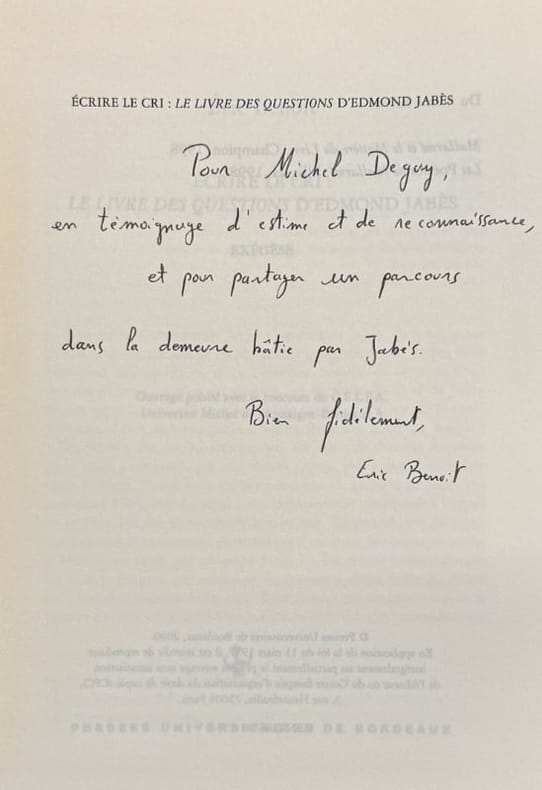 ÉCRIRE LE CRI : LE LIVRE DES QUESTIONS D'EDMOND JABÈS
Pour Michel Deguy,
en témoignage d'estime et de reconnaissance,
et pour partager un parcours
dans la demeure bâtie par Jabès.
Bien fidèlement,
Eric Benoit